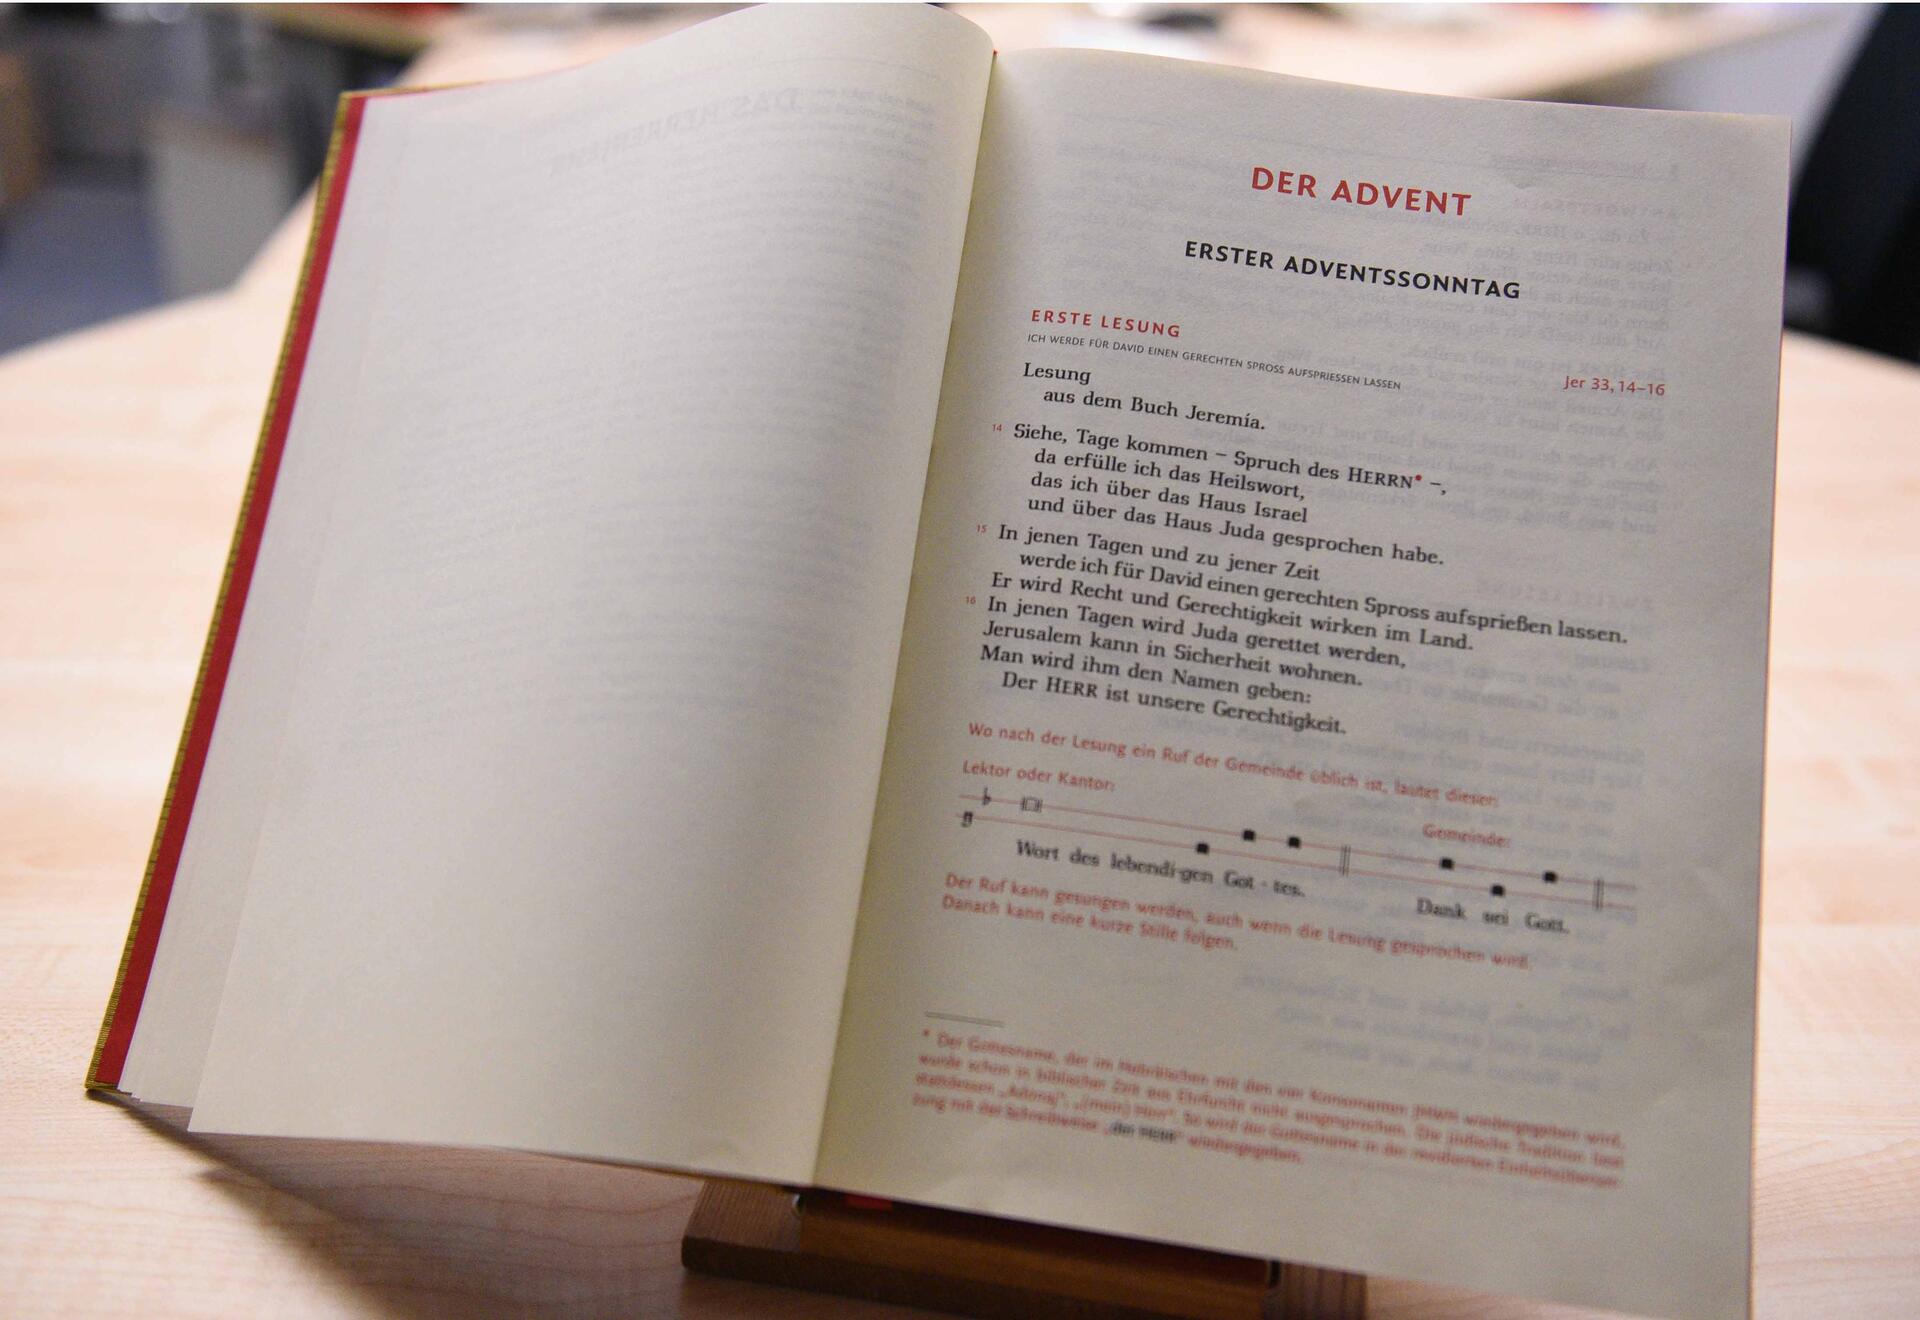 DER ADVENT
ERSTER ADVENTSSONNTAG
ERSTE LESUNG
ICH WERDE FÜR DAVID EINEN GERECHTEN SPROSS AUFSPRIESSEN LASSEN
Jer 33, 14–16
Lesung
aus dem Buch Jeremía.
14 Siehe, Tage kommen – Spruch des HERRN* –,
da erfülle ich das Heilswort,
das ich über das Haus Israel
und über das Haus Juda gesprochen habe.
15 In jenen Tagen und zu jener Zeit
werde ich für David einen gerechten Spross aufsprießen lassen.
Er wird Recht und Gerechtigkeit wirken im Land.
16 In jenen Tagen wird Juda gerettet werden,
Jerusalem kann in Sicherheit wohnen.
Man wird ihm den Namen geben:
Der HERR ist unsere Gerechtigkeit.
Wo nach der Lesung ein Ruf der Gemeinde üblich ist, lautet dieser:
Lektor oder Kantor:
Gemeinde:
Wort des lebendi-gen Got - tes.
Dank sei Gott.
Der Ruf kann gesungen werden, auch wenn die Lesung gesprochen wird.
Danach kann eine kurze Stille folgen.
* Der Gottesname, der im Hebräischen mit den vier Konsonanten JHWH wiedergegeben wird,
wurde schon in biblischer Zeit aus Ehrfurcht nicht ausgesprochen. Die jüdische Tradition liest
stattdessen „Adonaj“, „(mein) Herr“. So wird der Gottesname in der revidierten Einheitsüberset-
zung mit der Schreibweise „der HERR“ wiedergegeben.